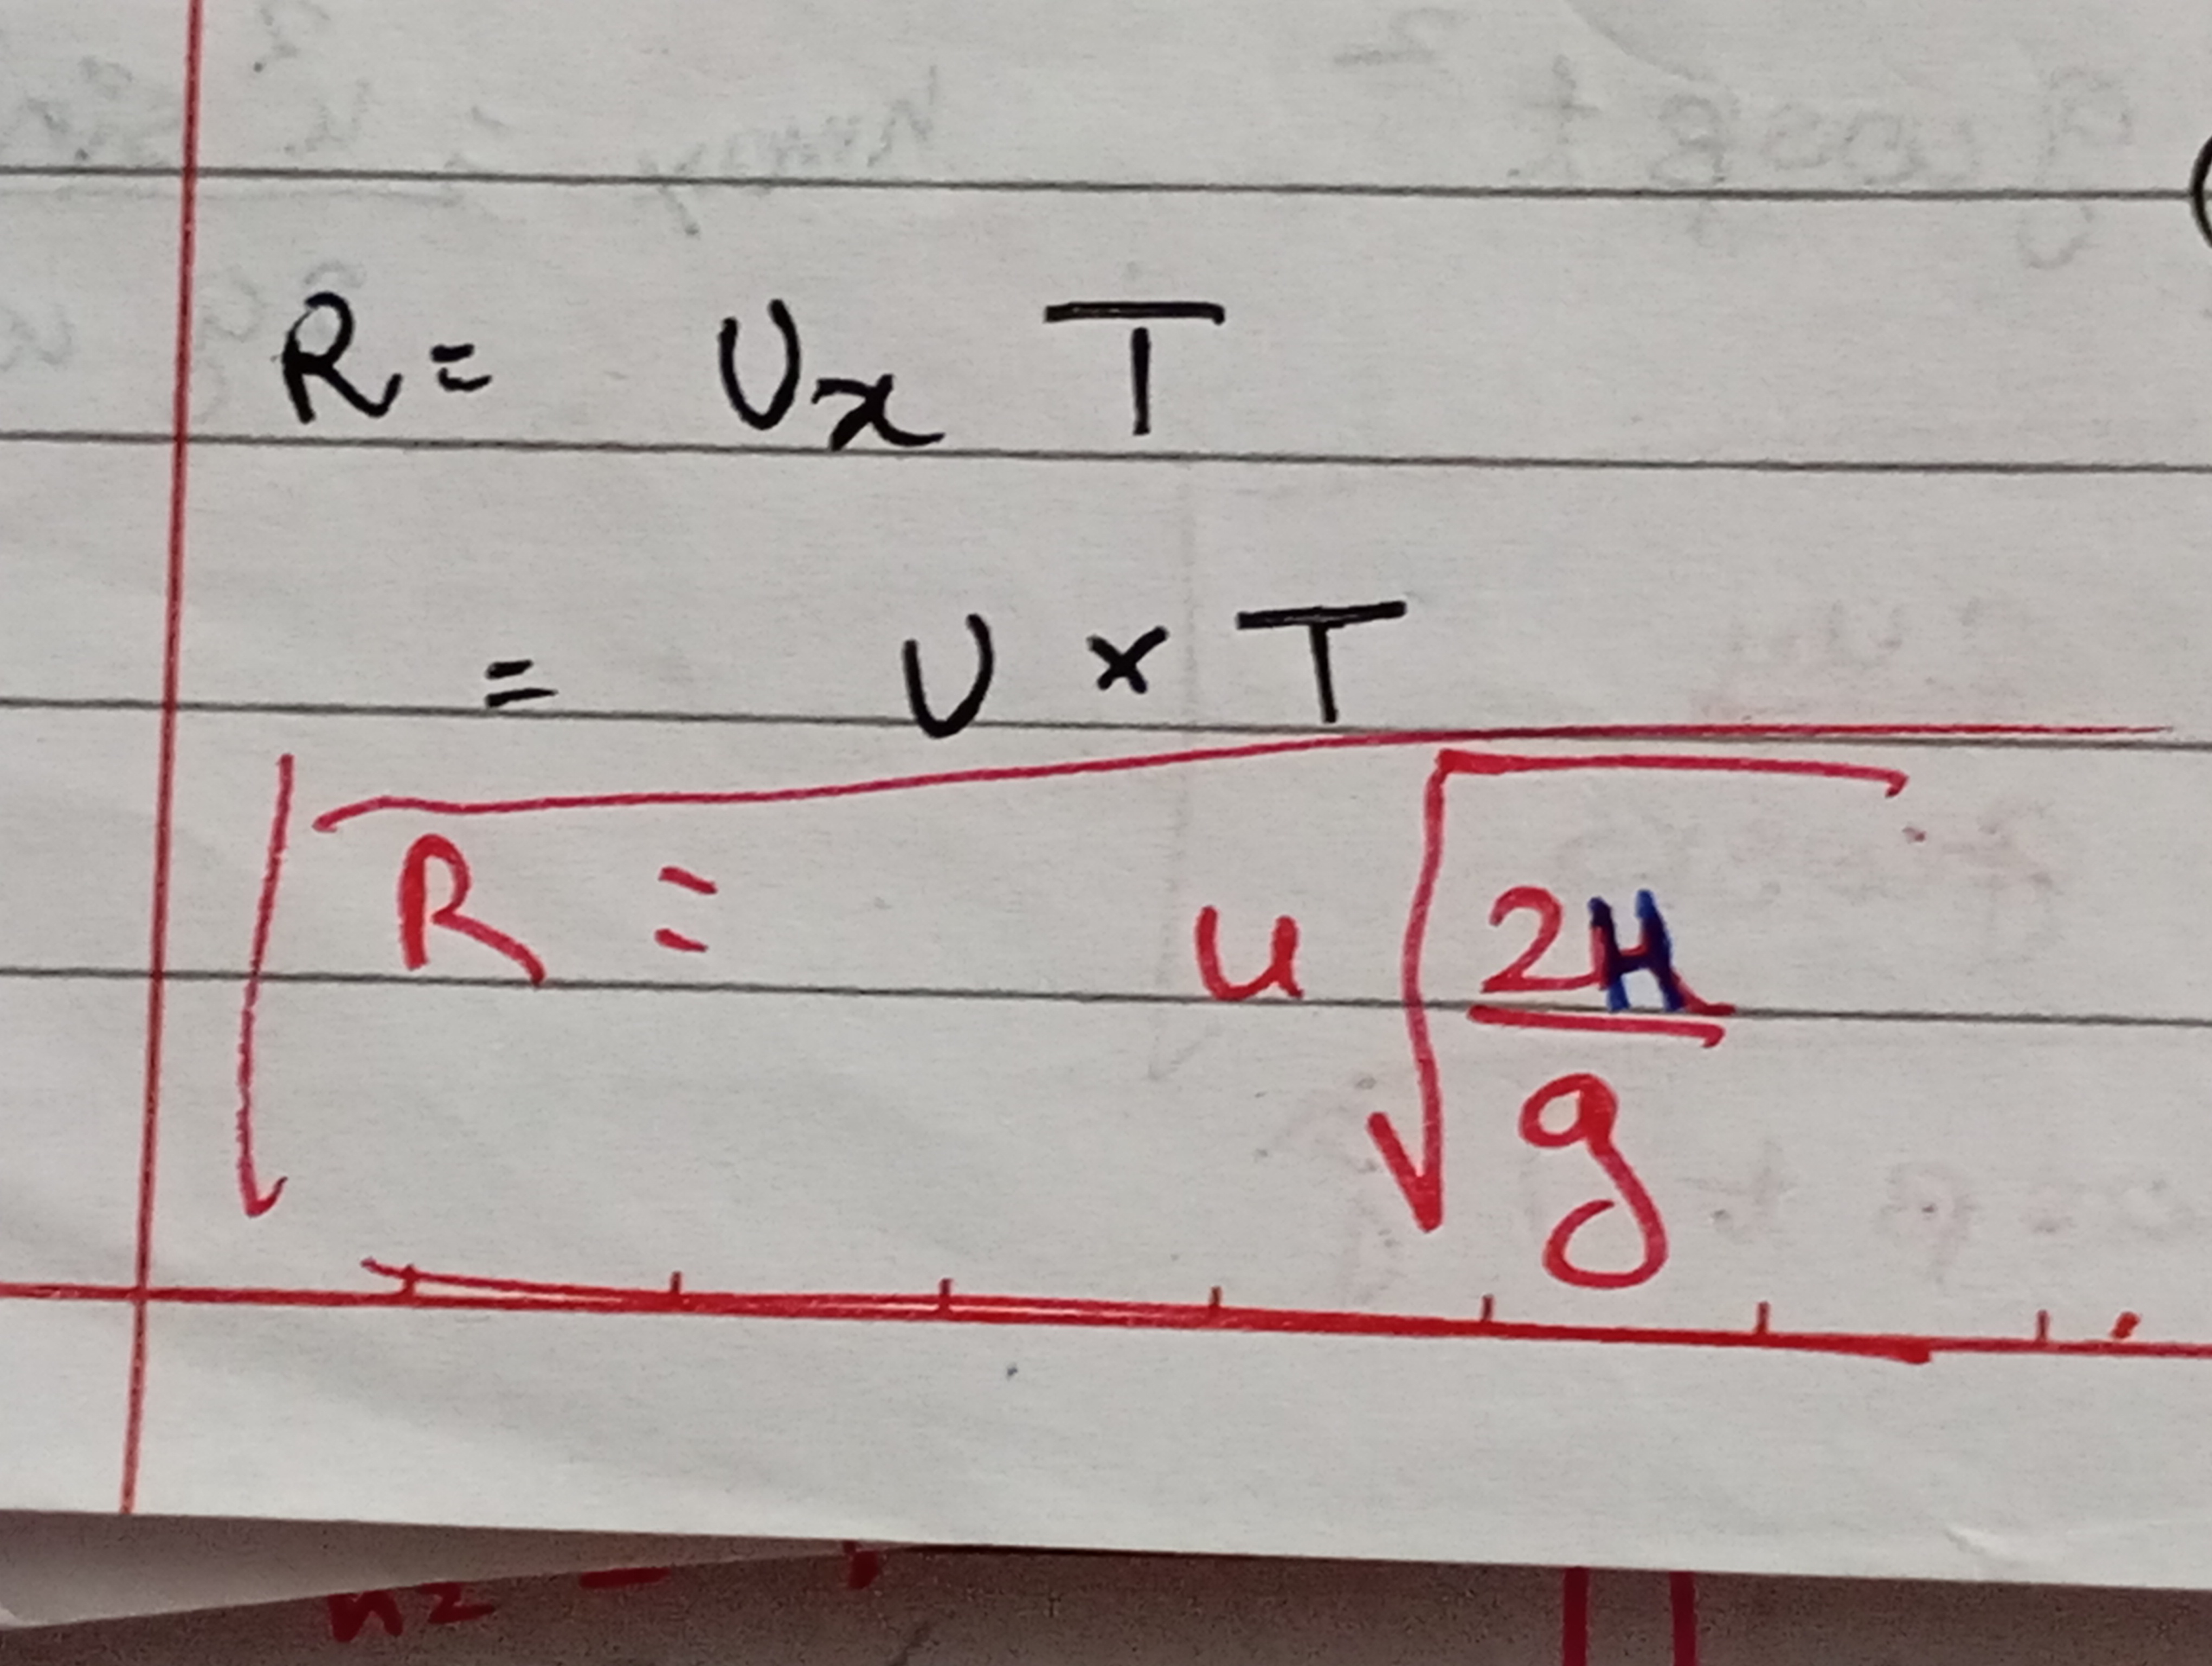 R = Uₓ T
= U × T
R = u √(2H/g)
n2 -